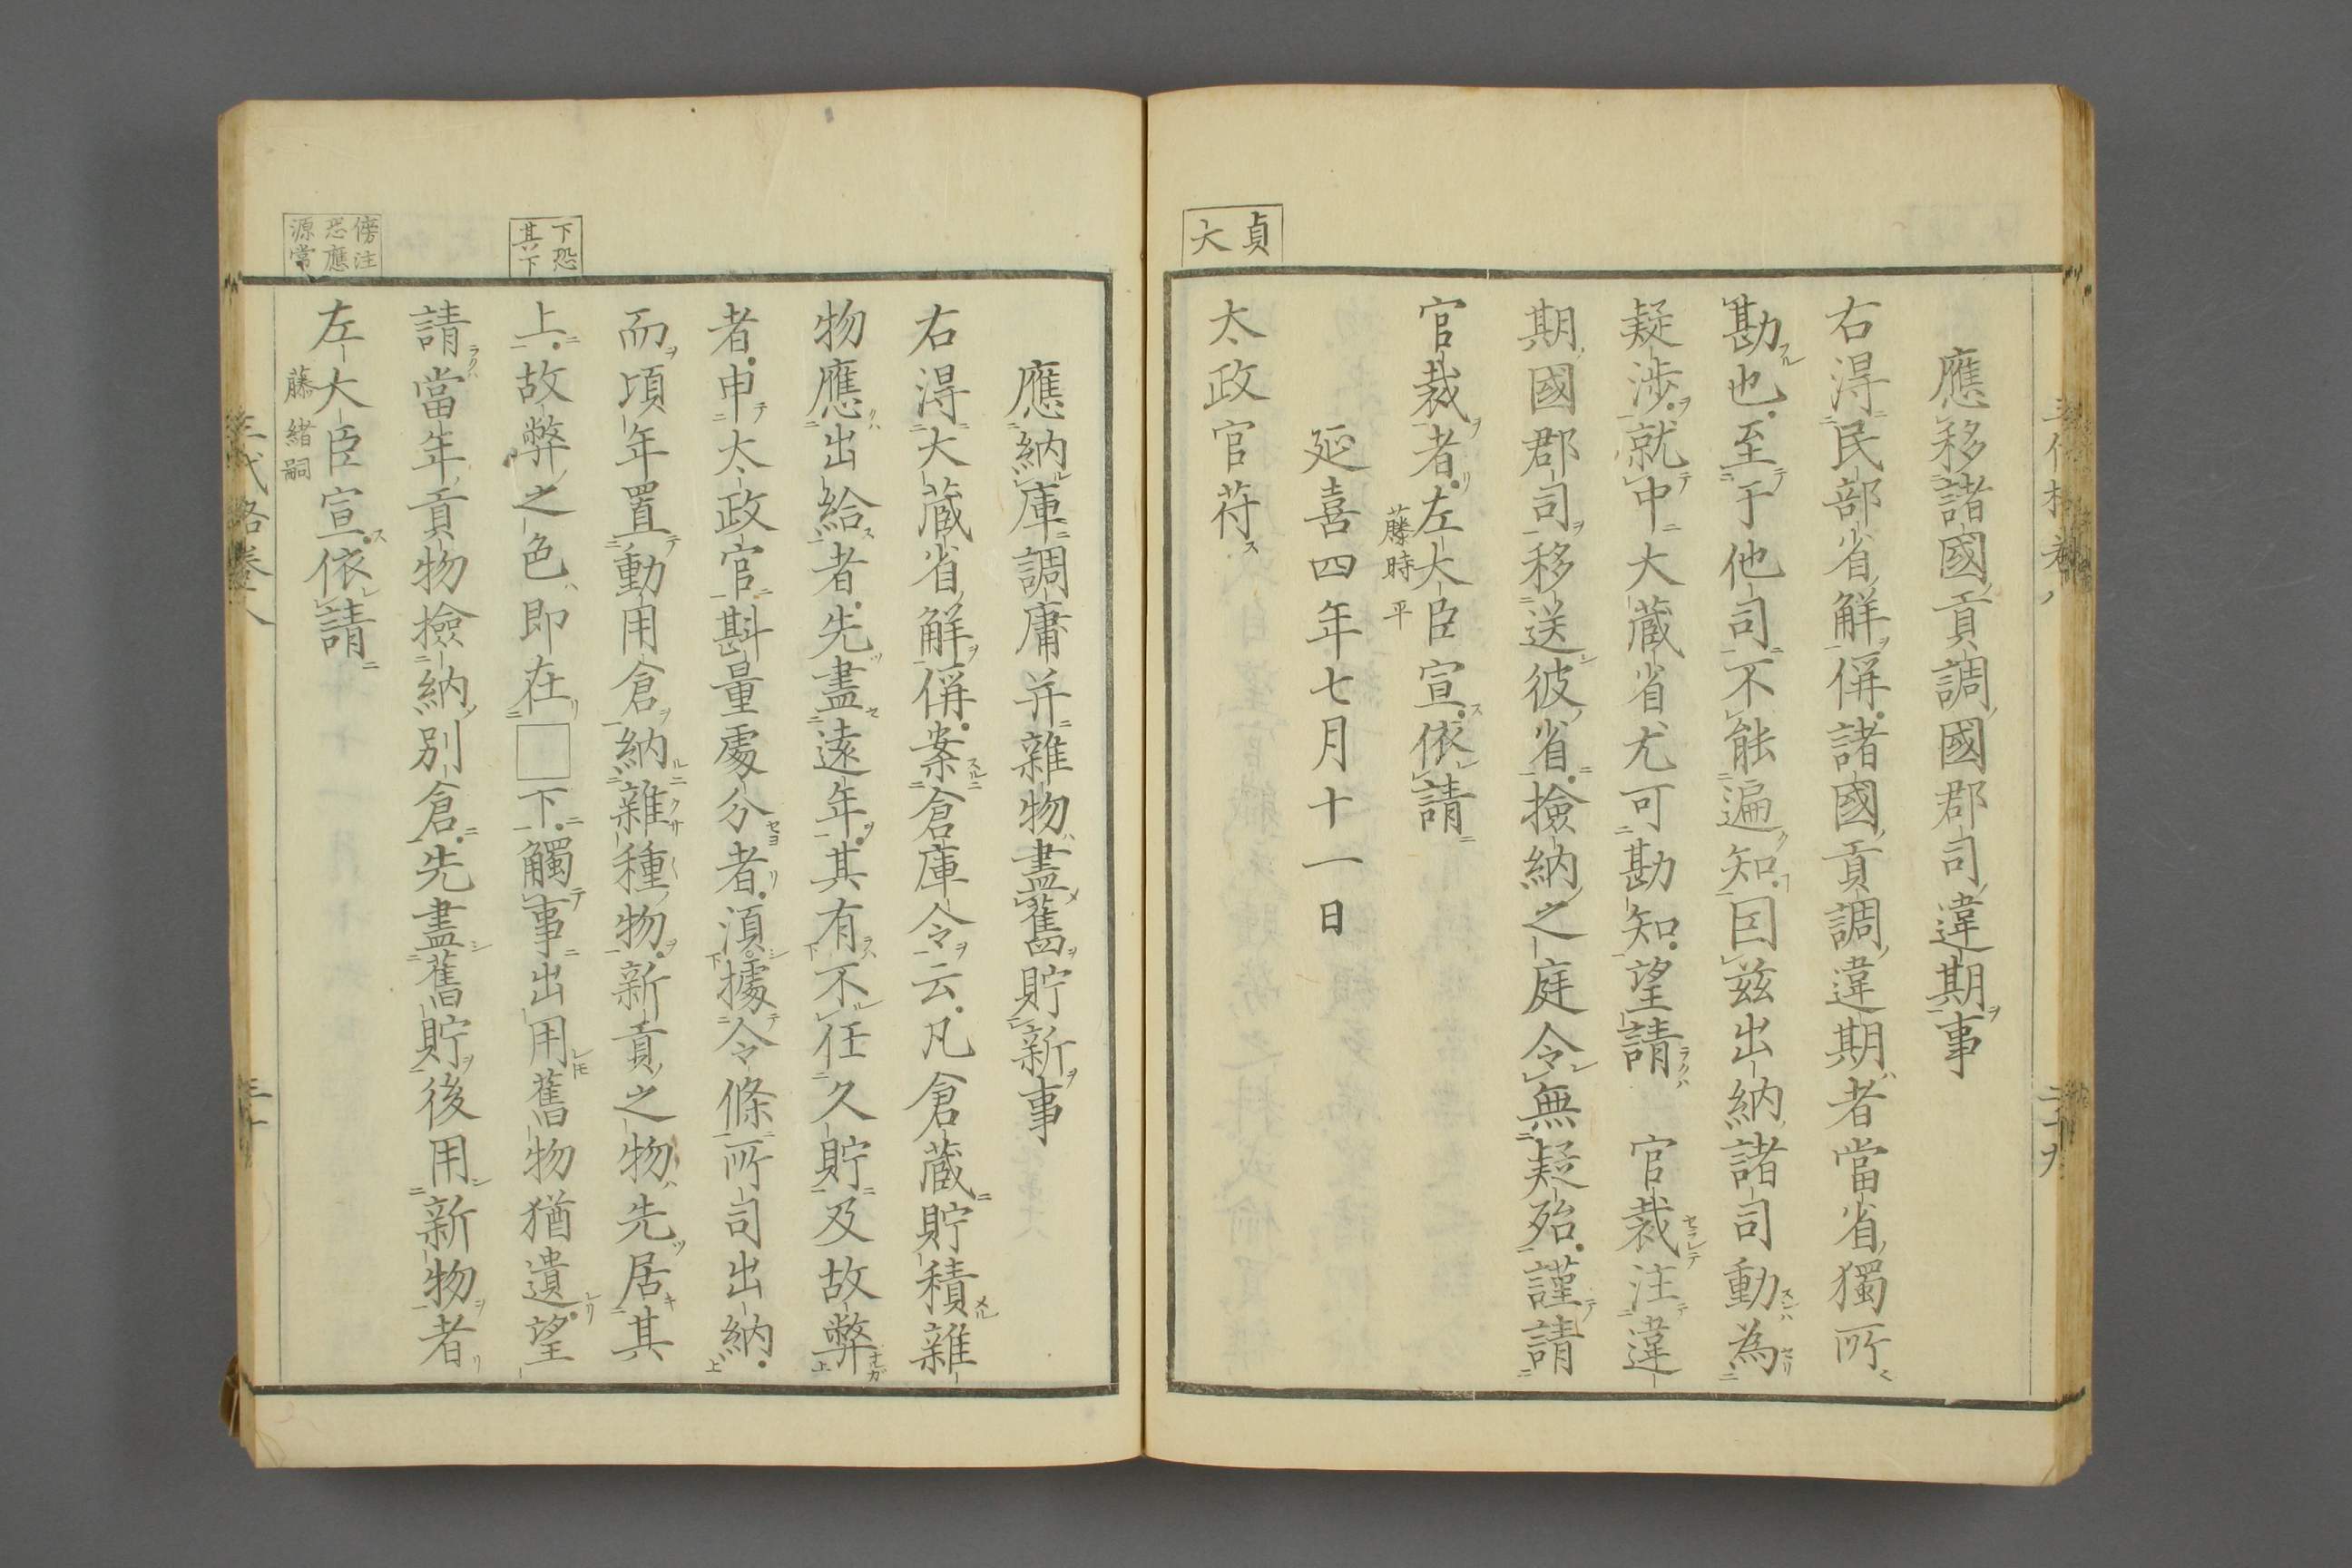 應移諸國貢調國郡司違期事
右得民部省解偁諸國貢調違期者當省獨所
勘也至于他司不能遍知因茲出納諸司動為
疑渉就中大蔵省尤可勘知望請 官裁注違
期國郡司移送彼省撿納之庭令無疑殆謹請
官裁者左大臣宣依請
藤時平
延喜四年七月十一日
貞
大
太政官符
應納庫調庸并雜物盡舊貯新事
右得大蔵省解偁案倉庫令云凡倉蔵貯積雜
物應出給者先盡遠年其有不任久貯及故弊
者申太政官斟量處分者須據令條所司出納
而頃年置動用倉納雜種物新貢之物先居其
下恐
其下
上故弊之色即在□下觸事出用舊物猶遺望
請當年貢物撿納別倉先盡舊貯後用新物者
傍注
恐應
源常
左大臣宣依請
藤緒嗣